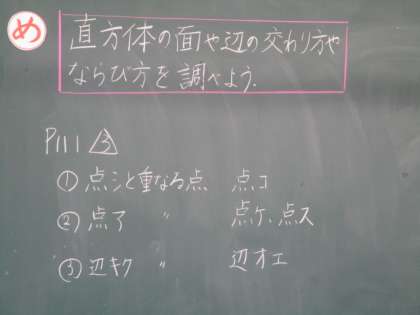 め
直方体の面や辺の交わり方や
ならび方を調べよう.
P111 ③
① 点シと重なる点 点コ
② 点ア 〃 点ケ、点ス
③ 辺キク 〃 辺オエ